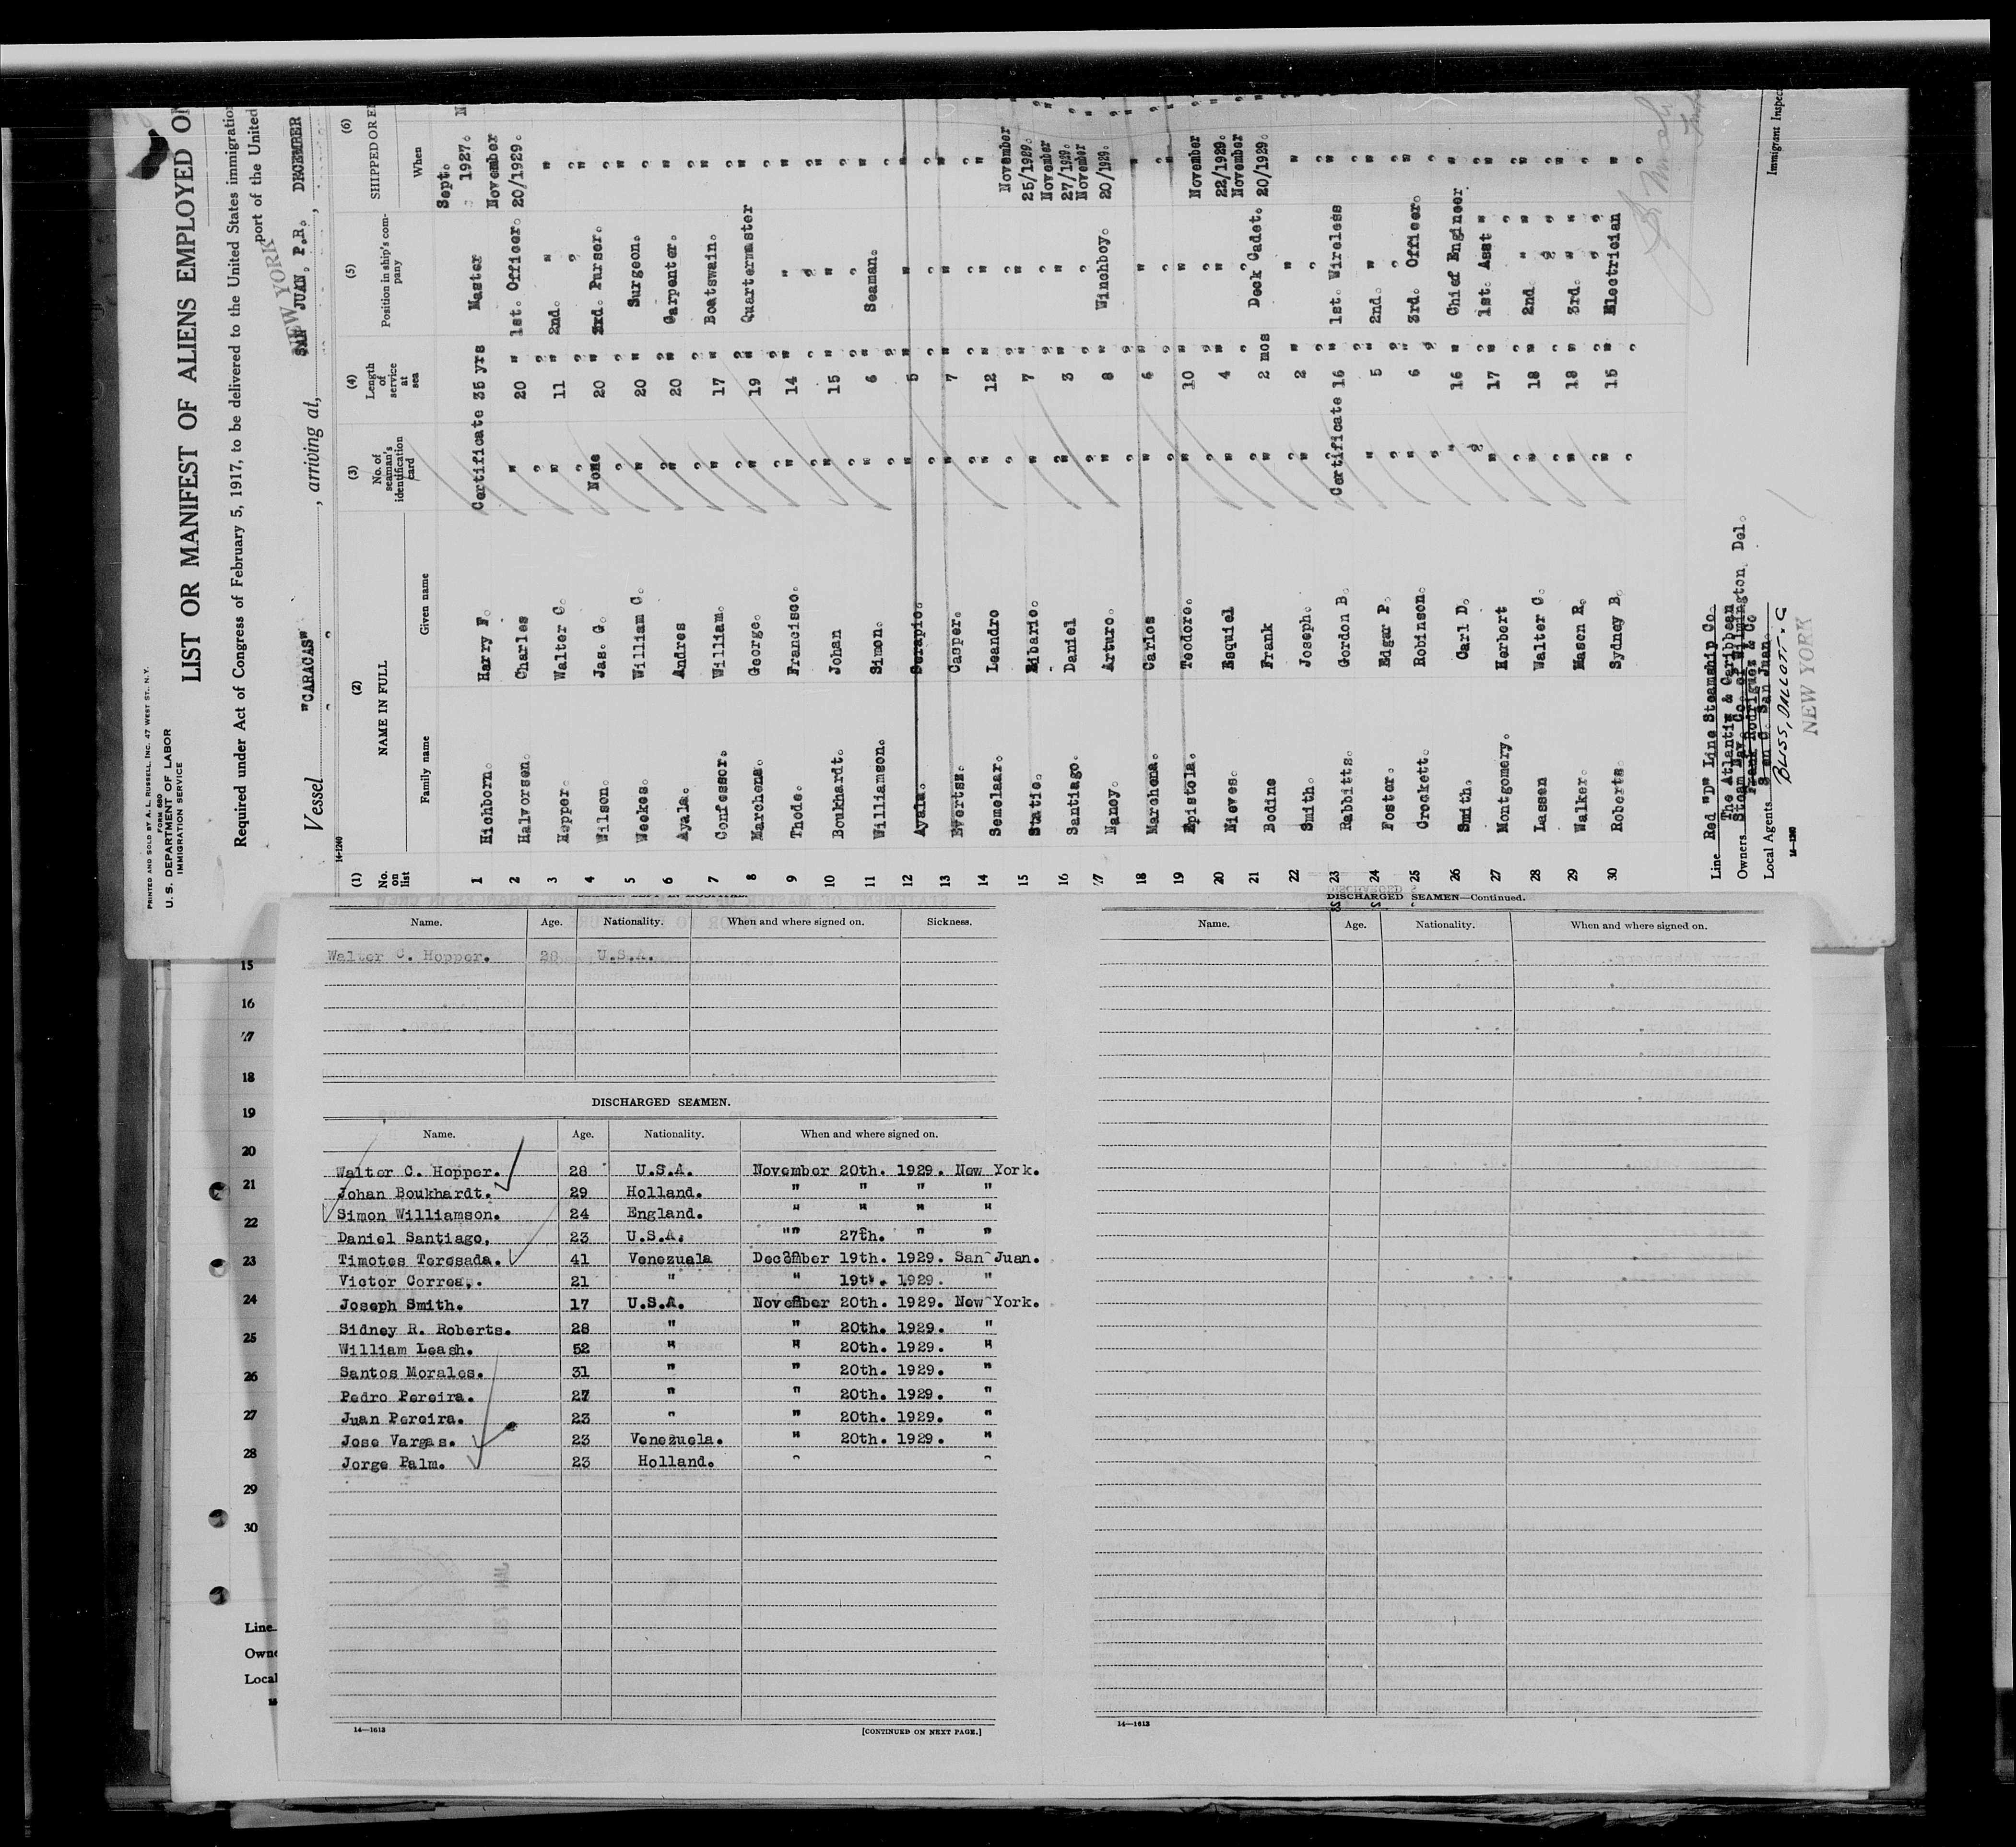 PRINTED AND SOLD BY A. L. RUSSELL, INC. 47 WEST ST., N.Y.
FORM 680
U. S. DEPARTMENT OF LABOR
IMMIGRATION SERVICE
LIST OR MANIFEST OF ALIENS EMPLOYED ON
Required under Act of Congress of February 5, 1917, to be delivered to the United States immigration
port of the United
NEW YORK
Vessel "CARACAS", arriving at, SAN JUAN, P.R. DECEMBER
14-1240
(1) (2) (3) (4) (5) (6)
No. on list NAME IN FULL No. of seaman's identification card Length of service at sea Position in ship's company SHIPPED OR E
Family name Given name When
1 Hichborn. Harry F. Certificate 35 yrs Master Sept. 1927.
2 Halvorsen. Charles " 20 " 1st. Officer. November 20/1929.
3 Hopper. Walter C. " 11 " 2nd. " "
4 Wilson. Jas. G. None 20 " Purser. "
5 Weekes. William C. " 20 " Surgeon. "
6 Ayala. Andres " 20 " Carpenter. "
7 Confessor. William. " 17 " Boatswain. "
8 Marchena. George. " 19 " Quartermaster "
9 Thode. Francisco. " 14 " " "
10 Boukhardt. Johan " 15 " " "
11 Williamson. Simon. " 6 " Seaman. "
12 Ayala. Serapio. " 5 " " "
13 Evertsz. Casper. " 7 " " "
14 Semelar. Leandro " 12 " " "
15 Stattie. Eibario. " 7 " " November 25/1929.
16 Santiago. Daniel " 3 " " November 27/1929.
17 Nancy. Arturo. " 8 " Winchboy. November 20/1929.
18 Marchena. Carlos " 6 " " "
19 Epistola. Teodoro. " 10 " " "
20 Nieves. Esquiel " 4 " " November 22/1929.
21 Bodine Frank 2 mos Deck Cadet. November 20/1929.
22 Smith. Joseph. " 2 " " "
23 Rabbitts. Gordon B. Certificate 16 " 1st. Wireless "
24 Foster. Edgar P. " 5 " 2nd. " "
25 Crockett. Robinson. " 6 " 3rd. Officer. "
26 Smith. Carl D. " 16 " Chief Engineer "
27 Montgomery. Herbert " 17 " 1st. Asst " "
28 Lassen Walter C. " 18 " 2nd. " "
29 Walker. Mason R. " 18 " 3rd. " "
30 Roberts. Sydney B. " 15 " Electrician "
Line Red "D" Line Steamship Co.
The Atlantic & Caribbean
Owners Steam Nav. Co. of Wilmington Del.
Frank Rodriguez & Co
Local Agents San Juan.
BLISS, DALLETT & C
NEW YORK
14-1240
Immigrant Inspec
Name. Age. Nationality. When and where signed on. Sickness.
Walter C. Hopper. 28 U.S.A.
DISCHARGED SEAMEN.
Name. Age. Nationality. When and where signed on.
Walter C. Hopper. 28 U.S.A. November 20th. 1929. New York.
Johan Boukhardt. 29 Holland. " " " "
Simon Williamson. 24 England. " " " "
Daniel Santiago, 23 U.S.A. " 27th. " "
Timotes Teresada. 41 Venezuala December 19th. 1929. San Juan.
Victor Correa,. 21 " " 19th. 1929. "
Joseph Smith. 17 U.S.A. November 20th. 1929. New York.
Sidney R. Roberts. 28 " " 20th. 1929. "
William Leash. 52 " " 20th. 1929. "
Santos Morales. 31 " " 20th. 1929. "
Pedro Pereira. 27 " " 20th. 1929. "
Juan Pereira. 23 " " 20th. 1929. "
Jose Vargas. 23 Venezuela. " 20th. 1929. "
Jorge Palm. 23 Holland. " "
14—1613
[CONTINUED ON NEXT PAGE.]
DISCHARGED SEAMEN—Continued.
Name. Age. Nationality. When and where signed on.
14—1613
15
16
17
18
19
20
21
22
23
24
25
26
27
28
29
30
Line
Owne
Local